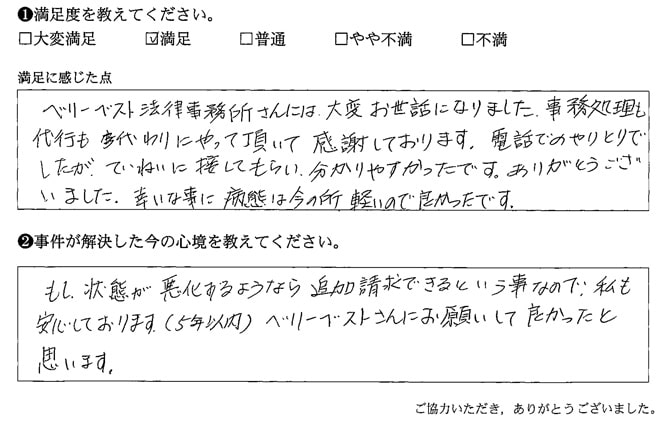 ❶満足度を教えてください。
□大変満足 ☑満足 □普通 □やや不満 □不満
満足に感じた点
ベリーベスト法律事務所さんには、大変お世話になりました。事務処理も
代行も 代わりにやって頂いて 感謝しております。電話でのやりとりで
したが、ていねいに接してもらい、分かりやすかったです。ありがとうござ
いました。幸いな事に 病態は今の所、軽いので良かったです。
❷事件が解決した今の心境を教えてください。
もし、状態が 悪化するようなら 追加請求できるという事なので、私も
安心しております。(5年以内) ベリーベストさんにお願いして 良かったと
思います。
ご協力いただき，ありがとうございました。